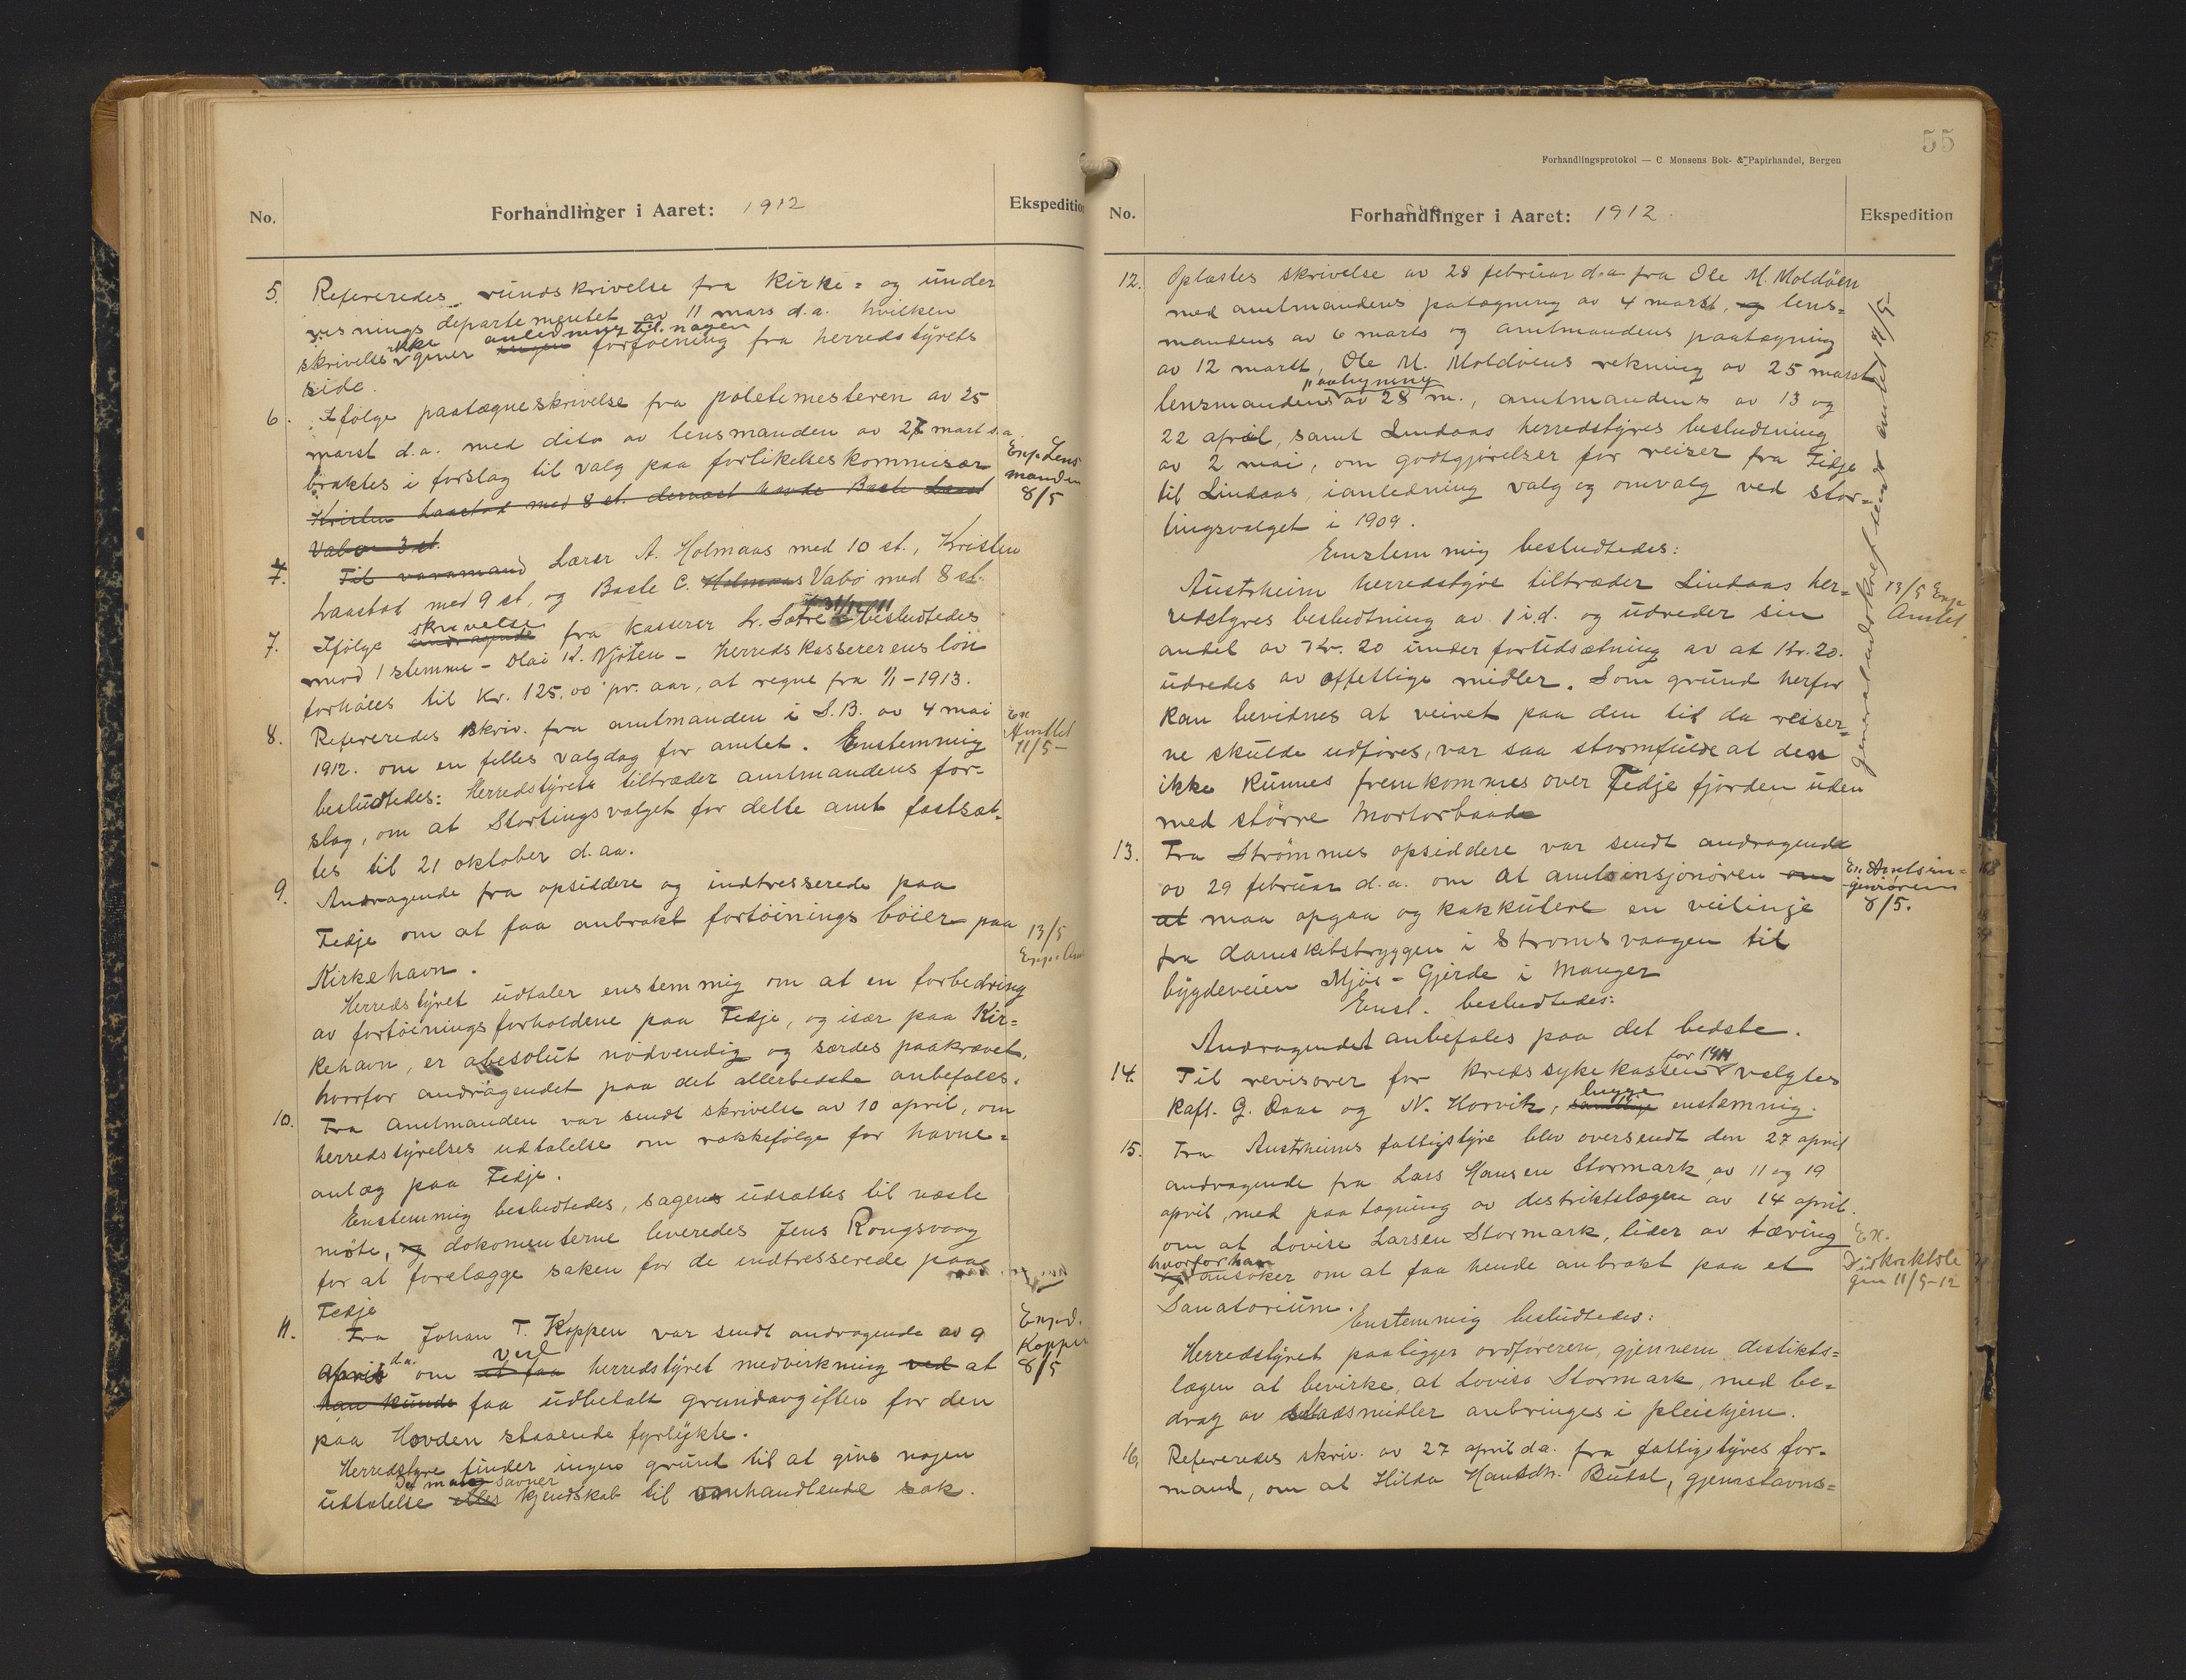 No.
Forhandlinger i Aaret: 1912
Ekspedition
5. Refereredes rundskrivelse fra Kirke= og under
visnings departementet av 11 mars d.a. hvilken
skrivelse ikke giver anledning til nogen forföining fra herredstyrets
side.
6. Ifölge paategneskrivelse fra politimesteren av 25
marst d.a. med dito av lensmanden av 27 mart s.a.
braktes i forslag til valg paa forlikelseskommisær
Kristen Laastad med 8 st. dernæst havde Baste
Vabö 3 st.
Exp. Lens
manden
8/5
7. Til varamand Lærer A. Holmaas med 10 st., Kristen
Laastad med 9 st, og Baste C. Holmaas Vabö med 8 st.
7. Ifölge andragende skrivelse fra Kasserer L. Sætre av 31/12 11 besludtedes
mod 1 stemme - Olai K. Njöten - Herredskassererens lön
forhöies til Kr. 125,00 pr. aar, at regne fra 1/1-1913.
8. Refereredes skriv. fra amtmanden i S.B. av 4 mai
1912. om en felles valgdag for amtet. Enstemmig
besludtedes: Herredstyrets tiltræder amtmandens for=
slag, om at Stortingsvalget for dette amt fastsæt=
tes til 21 oktober d.aa.
Ex
Amtet
11/5-
9. Andragende fra opsiddere og indtresserede paa
Fedje om at faa anbrakt fortöinings böier paa
Kirkehavn.
13/5
Exp. Am
Herredstyret udtaler enstemmig om at en forbedring
av fortöiningsforholdene paa Fedje, og især paa Kir=
kehavn, er abesolut nödvendig og særdes paakrævet,
hvorfor andragendet paa det allerbedste anbefales.
10. Fra Amtmanden var sendt skrivelse av 10 april, om
herredstyrelses udtalelse om rækkefölge for havne=
anlæg paa Fedje.
Enstemmig besludtedes, sagens udsættes til næste
möte, og dokomenterne leveredes Jens Rongsvaag
for at forelægge saken for de indtresserede paa
Fedje
11. Fra Johan T. Koppen var sendt andragende av 9
April d.a. om at faa ved herredstyret medvirkning ved at
han kunde faa udbetalt grundavgiften for den
paa Hovden staaende fyrlykte.
Exped.
Koppen
8/5
Herredstyre finder ingen grund til at give nogen
udtalelse eller Da man savner kjendskab til omhandlende sak.
55
Forhandlingsprotokol — C. Monsens Bok- & Papirhandel, Bergen
No.
Forhandlinger i Aaret: 1912.
Ekspedition
12. Oplæstes skrivelse av 28 februar d.a fra Ole M. Moldöen
med amtmandens patægning av 4 marst, og lens=
mandens av 6 marts og amtmandens paatægning
av 12 marst, Ole M. Moldöens rekning av 25 marst
lensmandens paategning av 28 m., amtmandens av 13 og
22 april, samt Lindaas herredstyres besludtning
av 2 mai, om godtgjörelser for reiser fra Fedje
til Lindaas, ianledning valg og omvalg ved stor=
tingsvalget i 1909.
Enstemmig besludtedes:
Austrheim herredstyre tiltræder Lindaas her=
redstyres besludtning av 1 i.d. og udreder sin
andel av Kr. 20 under fortudsætning av at Kr. 20.
udredes av offetlige midler. Som grund herfor
kan bevidnes at veiret paa den tid da reiser=
ne skulde udföres, var saa stormfulde at den
ikke kunnes fremkommes over Fedje fjorden uden
med större Mortorbaade
13/5 Exp
Amtet.
13. Fra Strömmes opsiddere var sendt andragende
av 29 februar d.a. om at amtsinsjönören om
at maa opgaa og kakkulere en veilinje
fra damskibsbryggen i Strömsvaagen til
bygdeveien Mjös - Gjerde i Manger
Enst. besludtedes:
Andragendet anbefales paa det bedste.
Ex. Amtsin=
geniören
8/5.
14. Til revisorer for kredssykekassen for 1911 valgtes
Kapt. G. Daae og N. Horvik, samtlige begge enstemmig.
15. Fra Austrheims fattigstyre blev oversendt den 27 april
andragende fra Lars Hansen Stormark av 11 og 19
april, med paatægning av destriktslægen av 14 april.
om at Lovise Larsen Stormark, lider av tæring
og hvorfor han ansöker om at faa hende anbrakt paa et
Sanatorium.
Ex.
Distriktslæ
gen 11/5-12
Enstemmig besludtedes:
Herredstyret paaligger ordföreren, gjennem distikts=
lægen at bevirke, at Lovise Stormark, med be=
drag av stadsmidler anbringes i pleiehjem.
16. Refereredes skriv. av 27 april d.a. fra fattigstyres for=
mand, om at Hilda Hansdtr. Budal, gjemstavns=